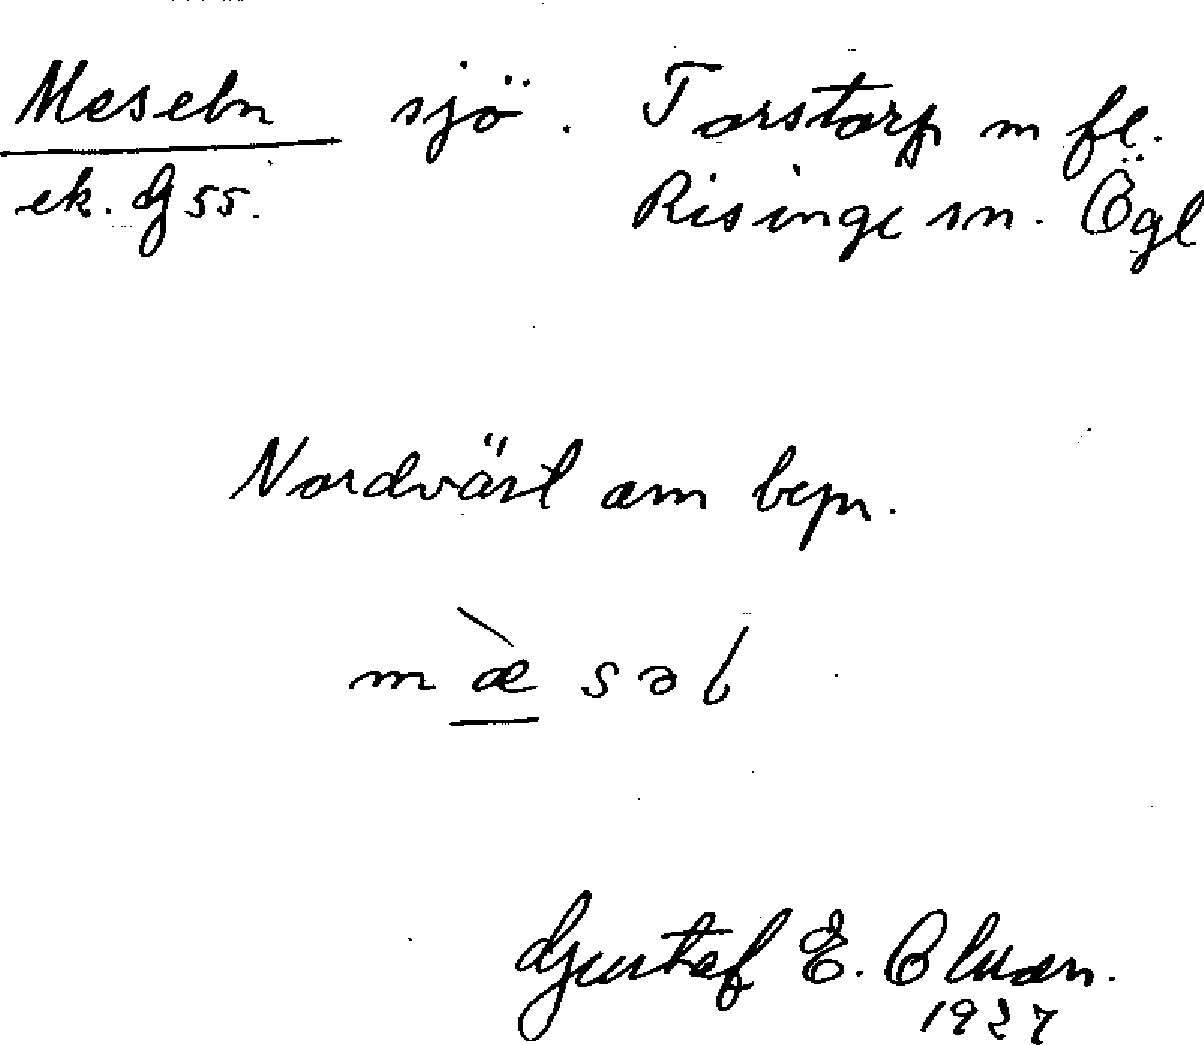 Meseln sjö. Torstorp m fl.
ek. G 55. Risinge sn. Ögl
Nordväst om bepr.
m æ̀ s ə l
Gustaf E. Olson.
1927